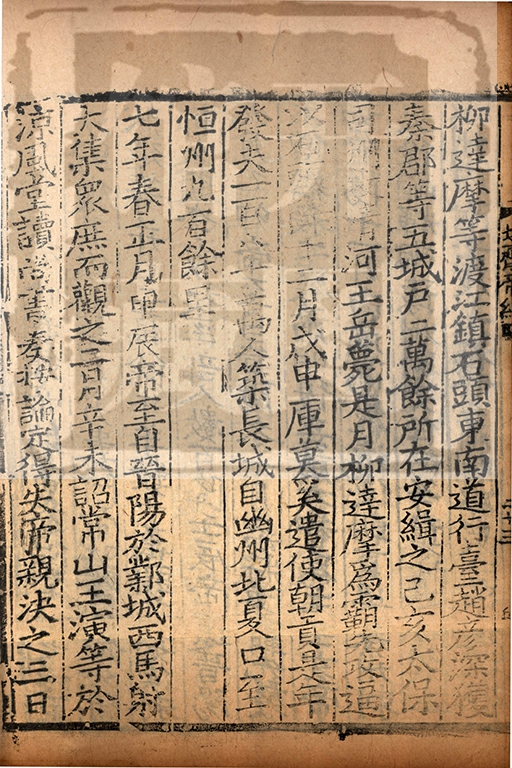 柳達摩等渡江鎮石頭東南道行臺趙彦深獲
秦郡等五城戸二萬餘所在安緝之己亥太保
司清河王岳薨是月柳達摩爲霸先攻逼
以石頭降十二月戊申庫莫奚遣使朝貢是年
發夫一百萬人築長城自幽州北夏口至
恒州九百餘里
七年春正月甲辰帝至自晉陽於鄴城西馬射
大集衆庶而觀之二月辛未詔常山王演等於
涼風堂讀尚書奏按論定得失帝親決之三日